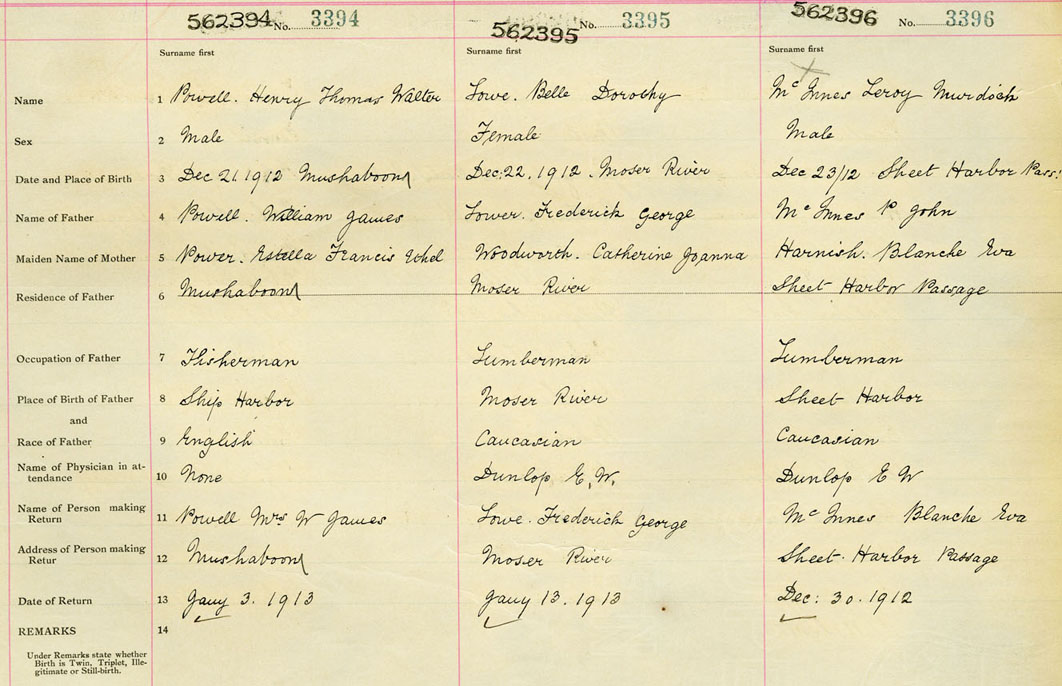 562394 No. 3394 562395 No. 3395 562396 No. 3396
Surname first Surname first Surname first
Name 1 Powell. Henry Thomas Walter Lowe. Belle Dorothy Mc Innes Leroy Murdock
Sex 2 Male Female Male
Date and Place of Birth 3 Dec 21. 1912 Mushaboom Dec. 22, 1912. Moser River Dec 23/12 Sheet Harbor Pass.
Name of Father 4 Powell. William James Lower. Frederick George Mc Innes P John
Maiden Name of Mother 5 Power. Estella Francis Ethel Woodworth. Catherine Joanna Harnish. Blanche Eva
Residence of Father 6 Mushaboom Moser River Sheet Harbor Passage
Occupation of Father 7 Fisherman Lumberman Lumberman
Place of Birth of Father 8 Ship Harbor Moser River Sheet Harbor
and
Race of Father 9 English Caucasian Caucasian
Name of Physician in at-
tendance 10 None Dunlop E, W. Dunlop E W
Name of Person making
Return 11 Powell Mrs W James Lowe. Frederick George Mc Innes Blanche Eva
Address of Person making
Retur 12 Mushaboom Moser River Sheet. Harbor Passage
Date of Return 13 Jany 3. 1913 Jany 13. 1913 Dec: 30. 1912
REMARKS 14
Under Remarks state whether
Birth is Twin, Triplet, Ille-
gitimate or Still-birth.